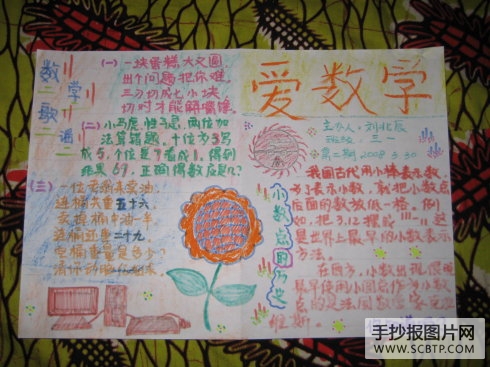 数学
歌谣
(一) 一块蛋糕大又圆
出个问题把你难
三刀切成七小块
切对才能解
(二) 小马虎,性子急,两位加
法算错题,十位为3写
成5,个位是9看成1,得到
结果69,正确得数应是几?
(三) 一位老翁来卖油
连桶共重五十六
卖掉桶中油一半
连桶还重二十九
空桶重量是多少?
爱数学
主办人:刘北辰
班级:三一
第一期 2008.3.30
小数点
我国古代用小棒表示数
为了表示小数,就把小数点
后面的数放低一格,例
如,把3.12摆成
是世界上最早的小数表示
方法。
在西方,小数出现很晚
最早使用小圆点作为小数
点的是法国数学家克拉
维斯。
手抄报图片网
WWW.SCBTP.COM